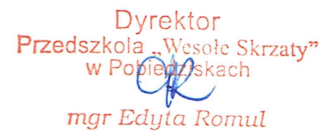 Dyrektor
Przedszkola „Wesołe Skrzaty”
w Pobiedziskach
mgr Edyta Romul